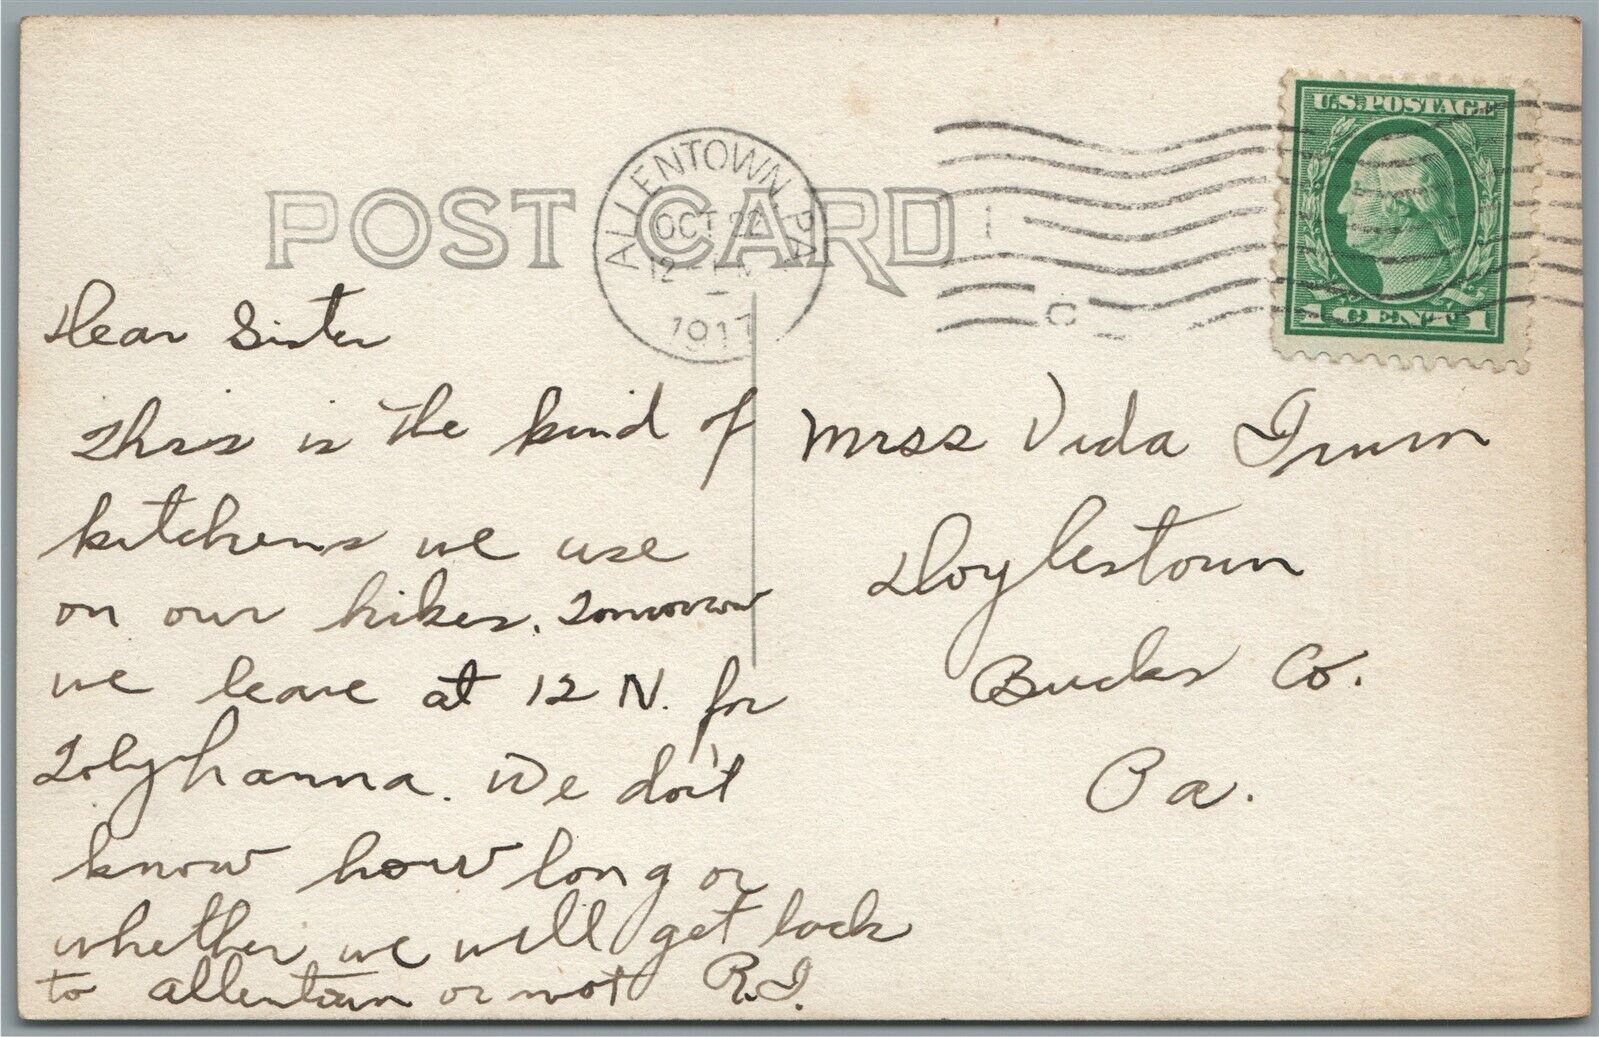 POST CARD
ALLENTOWN, PA
OCT 22
12 - 1 PM
1917
U.S. POSTAGE
1 CENT 1
Dear Sister
This is the kind of
kitchens we use
on our hikes. Tomorrow
we leave at 12 N. for
Tobyhanna. We don't
know how long or
whether we will get back
to allentown or not R.I.
Miss Vida Irwin
Doylestown
Bucks Co.
Pa.